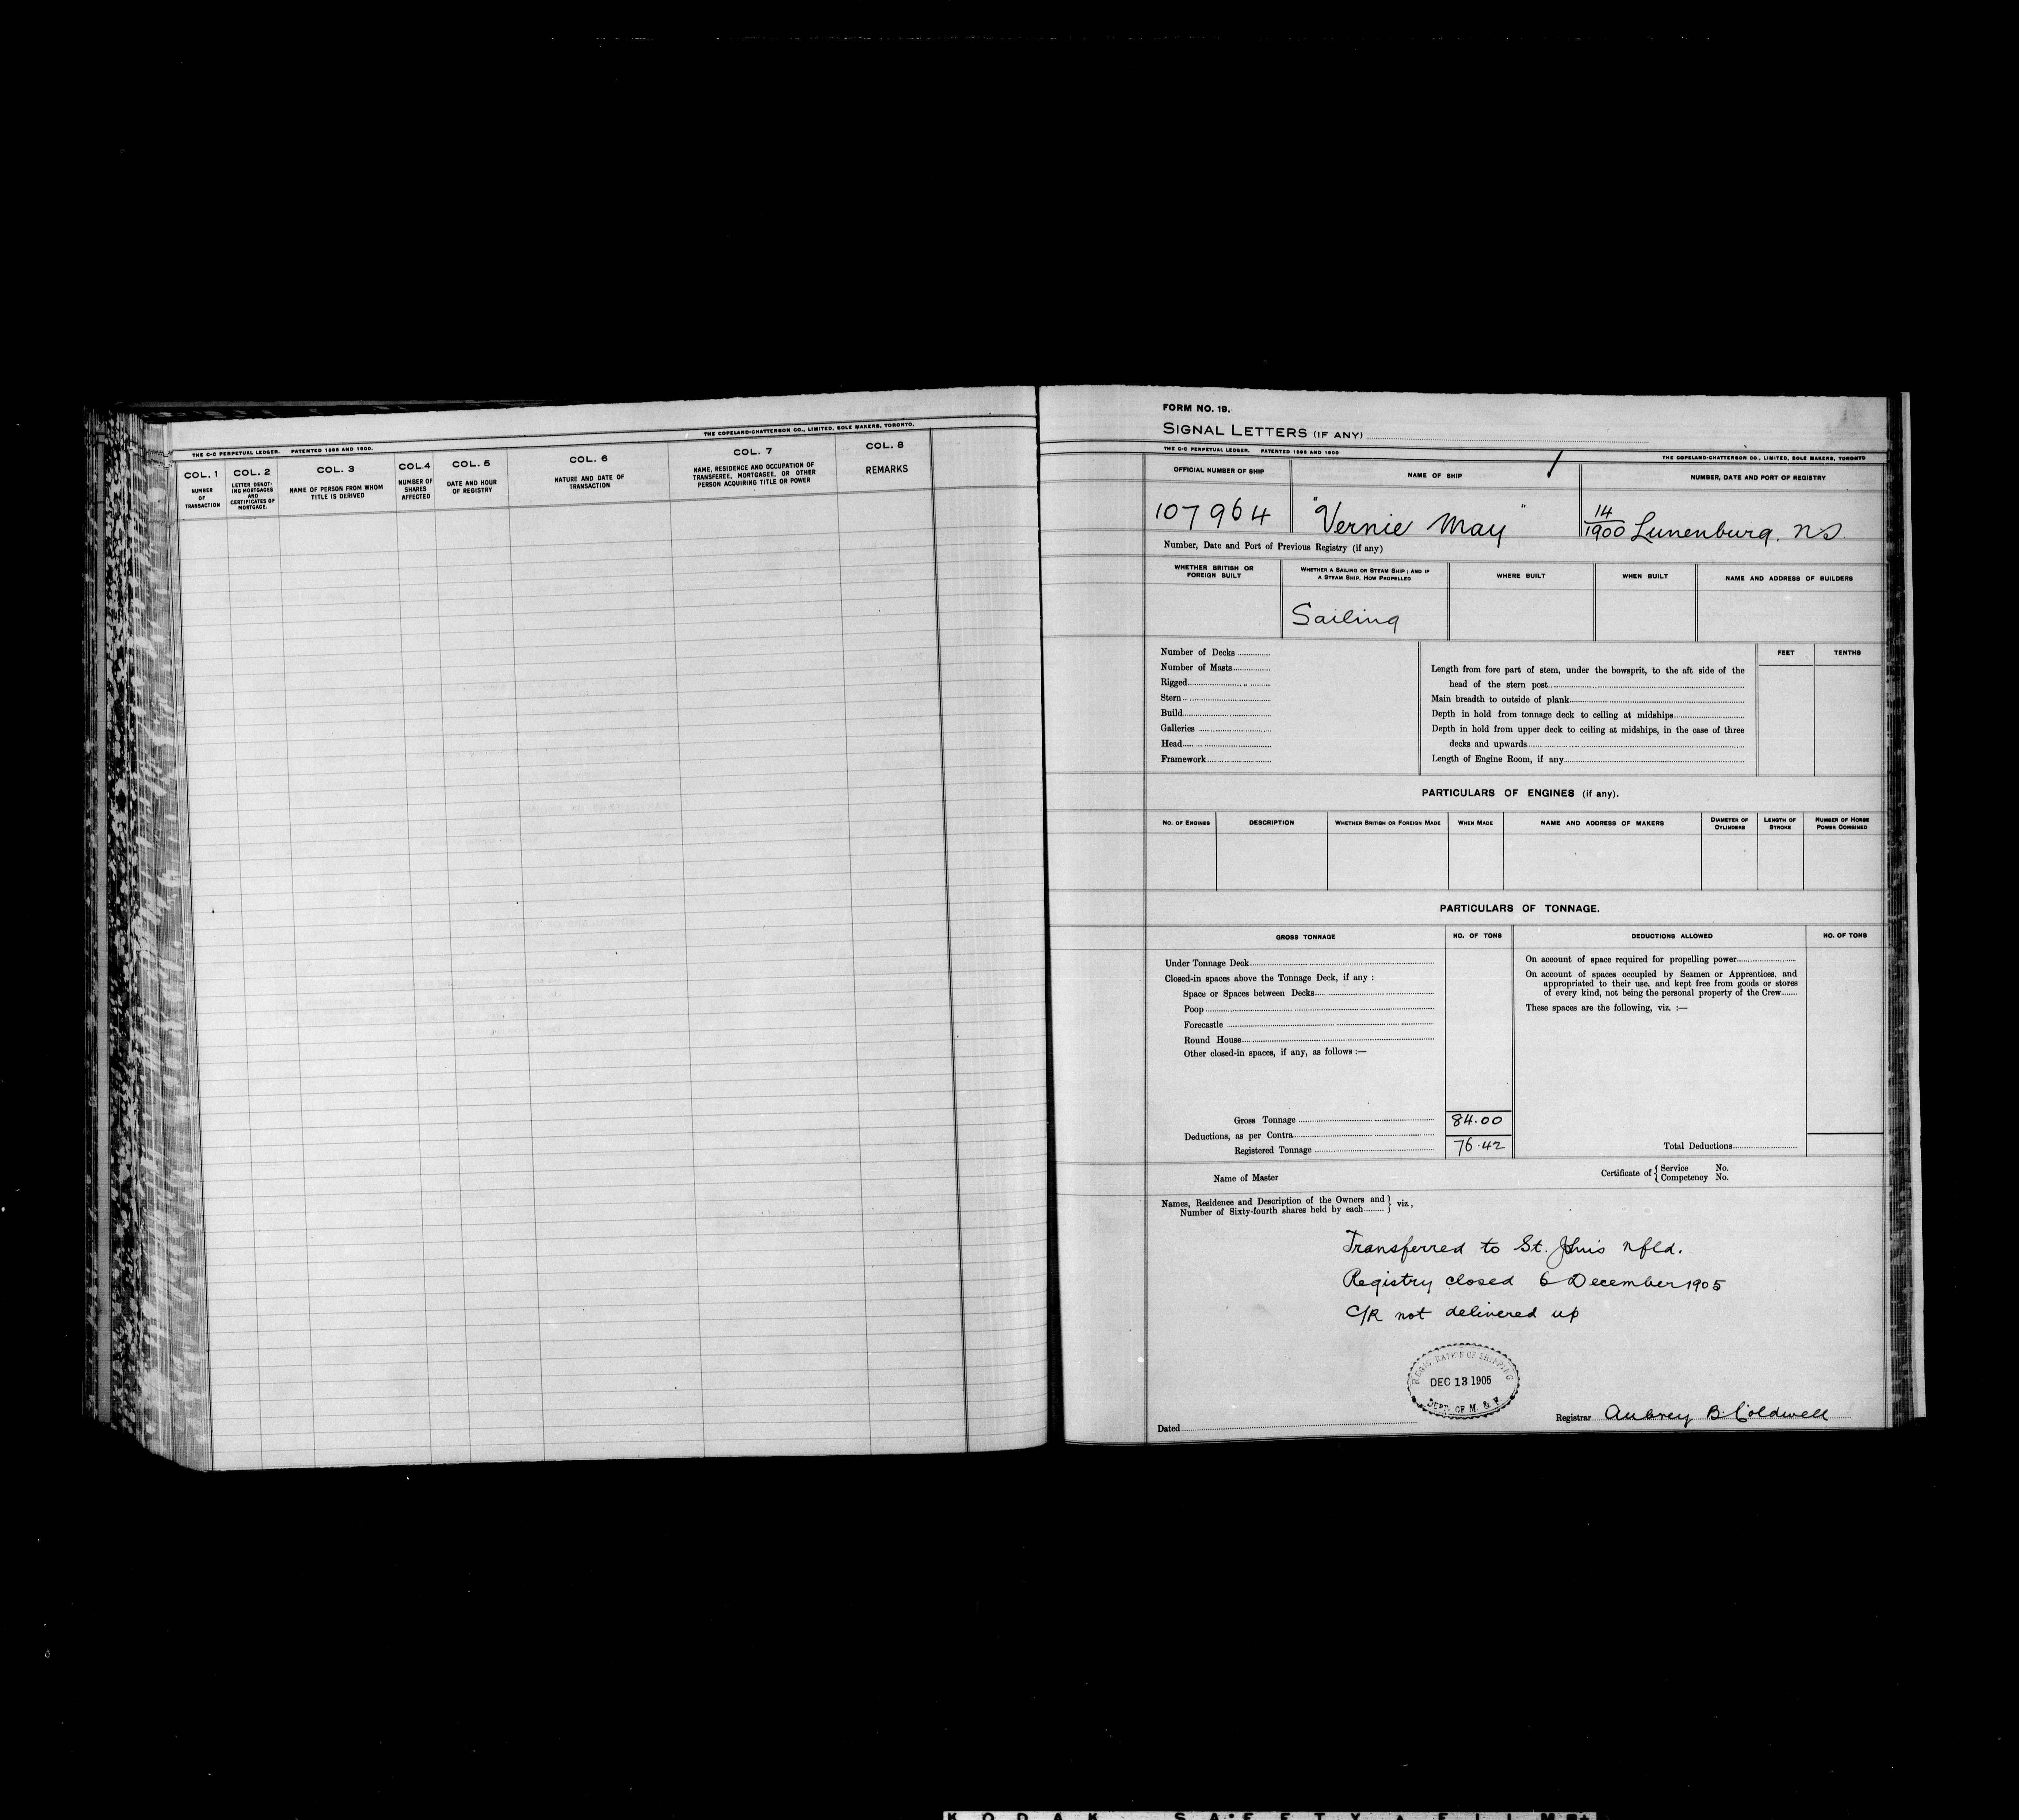 THE C-C PERPETUAL LEDGER. PATENTED 1898 AND 1900. THE COPELAND-CHATTERSON CO., LIMITED, SOLE MAKERS, TORONTO.
COL. 1 COL. 2 COL. 3 COL. 4 COL. 5 COL. 6 COL. 7 COL. 8
NUMBER OF TRANSACTION
LETTER DENOTING MORTGAGES AND CERTIFICATES OF MORTGAGE.
NAME OF PERSON FROM WHOM TITLE IS DERIVED
NUMBER OF SHARES AFFECTED
DATE AND HOUR OF REGISTRY
NATURE AND DATE OF TRANSACTION
NAME, RESIDENCE AND OCCUPATION OF TRANSFEREE, MORTGAGEE, OR OTHER PERSON ACQUIRING TITLE OR POWER
REMARKS
FORM NO. 19.
SIGNAL LETTERS (IF ANY)
THE C-C PERPETUAL LEDGER. PATENTED 1898 AND 1900 THE COPELAND-CHATTERSON CO., LIMITED, SOLE MAKERS, TORONTO
OFFICIAL NUMBER OF SHIP NAME OF SHIP NUMBER, DATE AND PORT OF REGISTRY
107964 "Vernie May" 14/1900 Lunenburg. NS.
Number, Date and Port of Previous Registry (if any)
WHETHER BRITISH OR FOREIGN BUILT
WHETHER A SAILING OR STEAM SHIP; AND IF A STEAM SHIP, HOW PROPELLED
WHERE BUILT WHEN BUILT NAME AND ADDRESS OF BUILDERS
Sailing
Number of Decks
Number of Masts
Rigged
Stern
Build
Galleries
Head
Framework
FEET TENTHS
Length from fore part of stem, under the bowsprit, to the aft side of the
head of the stern post
Main breadth to outside of plank
Depth in hold from tonnage deck to ceiling at midships
Depth in hold from upper deck to ceiling at midships, in the case of three
decks and upwards
Length of Engine Room, if any
PARTICULARS OF ENGINES (if any).
NO. OF ENGINES DESCRIPTION WHETHER BRITISH OR FOREIGN MADE WHEN MADE NAME AND ADDRESS OF MAKERS DIAMETER OF CYLINDERS LENGTH OF STROKE NUMBER OF HORSE POWER COMBINED
PARTICULARS OF TONNAGE.
GROSS TONNAGE NO. OF TONS DEDUCTIONS ALLOWED NO. OF TONS
Under Tonnage Deck
Closed-in spaces above the Tonnage Deck, if any :
Space or Spaces between Decks
Poop
Forecastle
Round House
Other closed-in spaces, if any, as follows :—
Gross Tonnage 84.00
Deductions, as per Contra
Registered Tonnage 76.42
On account of space required for propelling power
On account of spaces occupied by Seamen or Apprentices, and
appropriated to their use, and kept free from goods or stores
of every kind, not being the personal property of the Crew
These spaces are the following, viz. :—
Total Deductions
Name of Master Certificate of { Service No.
Competency No.
Names, Residence and Description of the Owners and
Number of Sixty-fourth shares held by each } viz.,
Transferred to St. Johns Nfld.
Registry closed 6 December 1905
C/R not delivered up
REGISTRATION OF SHIPPING
DEC 13 1905
DEPT. OF M. & F.
Dated
Registrar Aubrey B. Coldwell
KODAK SAFETY FILM